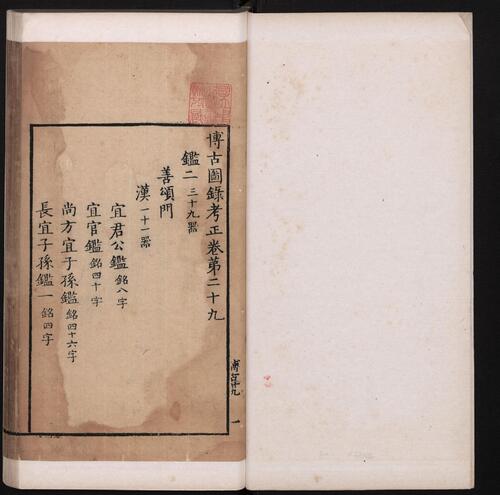 博古圖錄考正卷第二十九
鑑二 三十九器
善頌門
漢 一十一器
宜君公鑑 銘八字
宜官鑑 銘四十字
尚方宜子孫鑑 銘四十六字
長宜子孫鑑一 銘四字
一